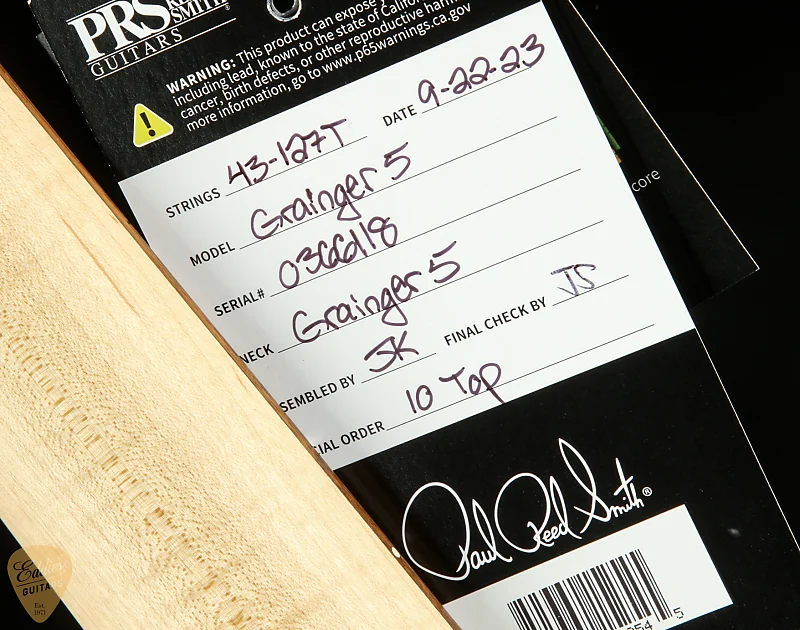 PRS
SMITH
GUITARS
WARNING: This product can expose
including lead, known to the state of Californ
cancer, birth defects, or other reproductive harm
more information, go to www.p65warnings.ca.gov
STRINGS 43-127T DATE 9-22-23
MODEL Grainger 5
SERIAL# 0366618
NECK Grainger 5
SEMBLED BY SK FINAL CHECK BY JS
CIAL ORDER 10 Top
core
Paul Reed Smith®
54 5
Eddie's
GUITARS
Est.
1971